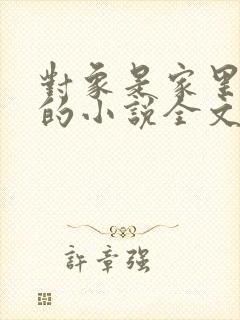 對象是家里
的小說全文
許章強